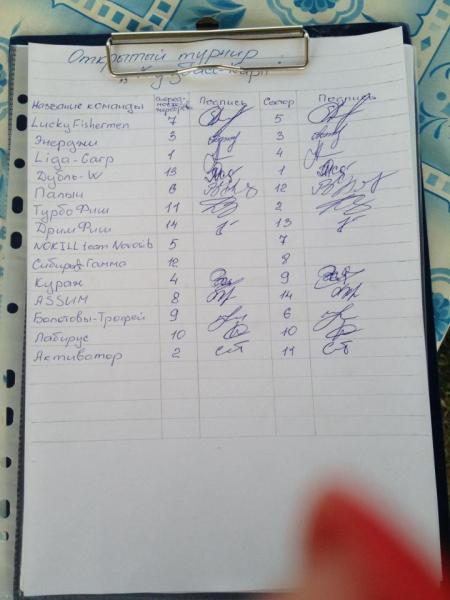 Открытый турнир
Название команды Подпись Сектор Подпись
Lucky Fishermen 7 5
Энерджи 3 3
Liga-Carp 1 4
Дубль-W 13 1
Палыч 6 12
Турбо Фиш 11 2
Дрим Фиш 14 13
NOKILL team Novosib 5 7
Сибирь Гамма 12 8
Кураж 4 9
ASSUM 8 14
Болотовы-Трофей 9 6
Лабирус 10 10
Активатор 2 11